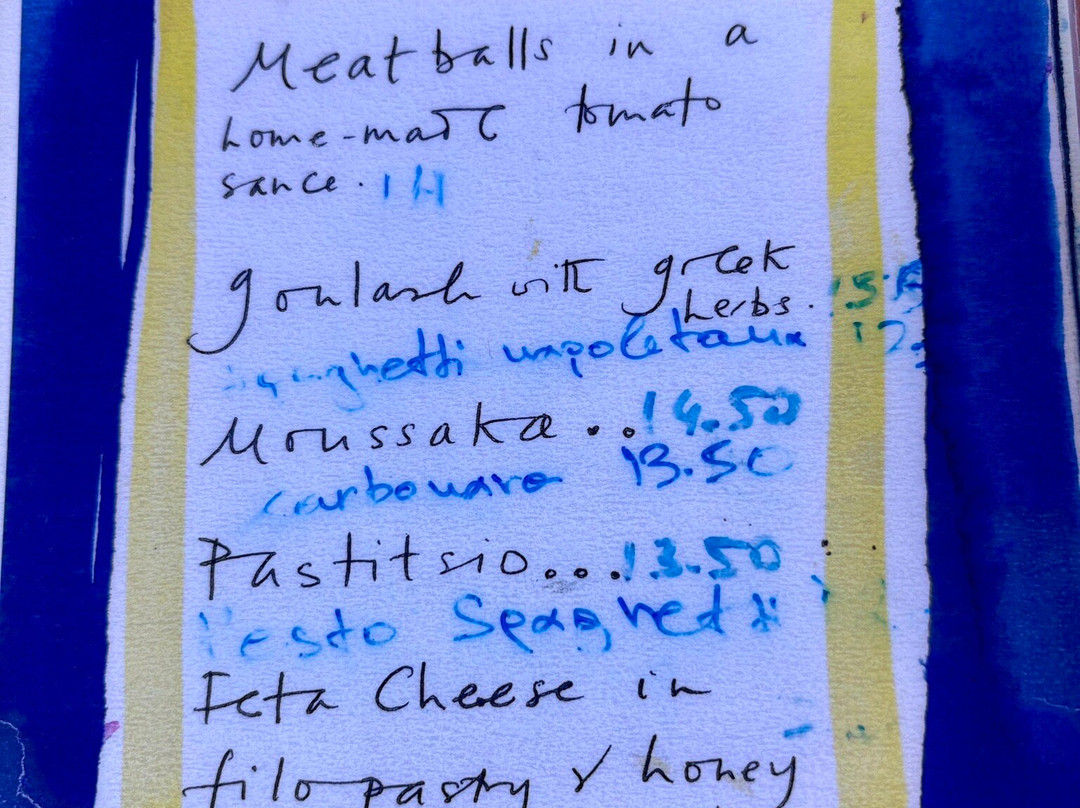 Meatballs in a
home-made tomato
sauce. 14
goulash with greek
herbs.
spaghetti napoletana 12.
Moussaka .. 14.50
carbonara 13.50
Pastitsio... 13.50
Pesto Spaghetti
Feta Cheese in
filo pastry & honey